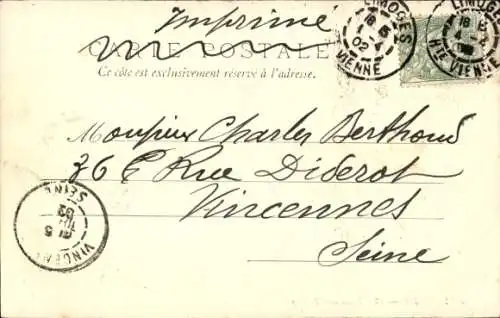 Imprimé
CARTE POSTALE
Ce côté est exclusivement réservé à l'adresse.
LIMOGES
18
4
02
VIENNE
LIMOGES
18
4
HTE VIENNE
Monsieur Charles Berthoud
36 E Rue Diderot
Vincennes
Seine
VINCENNES
5
02
SEINE